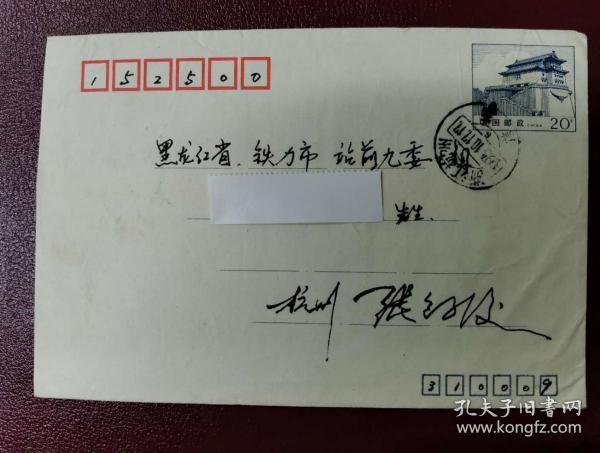 152500
中国邮政 CHINA
20分
黑龙江省 铁力市 站前九委
先生.
杭州 张
310009
孔夫子旧书网
www.kongfz.com